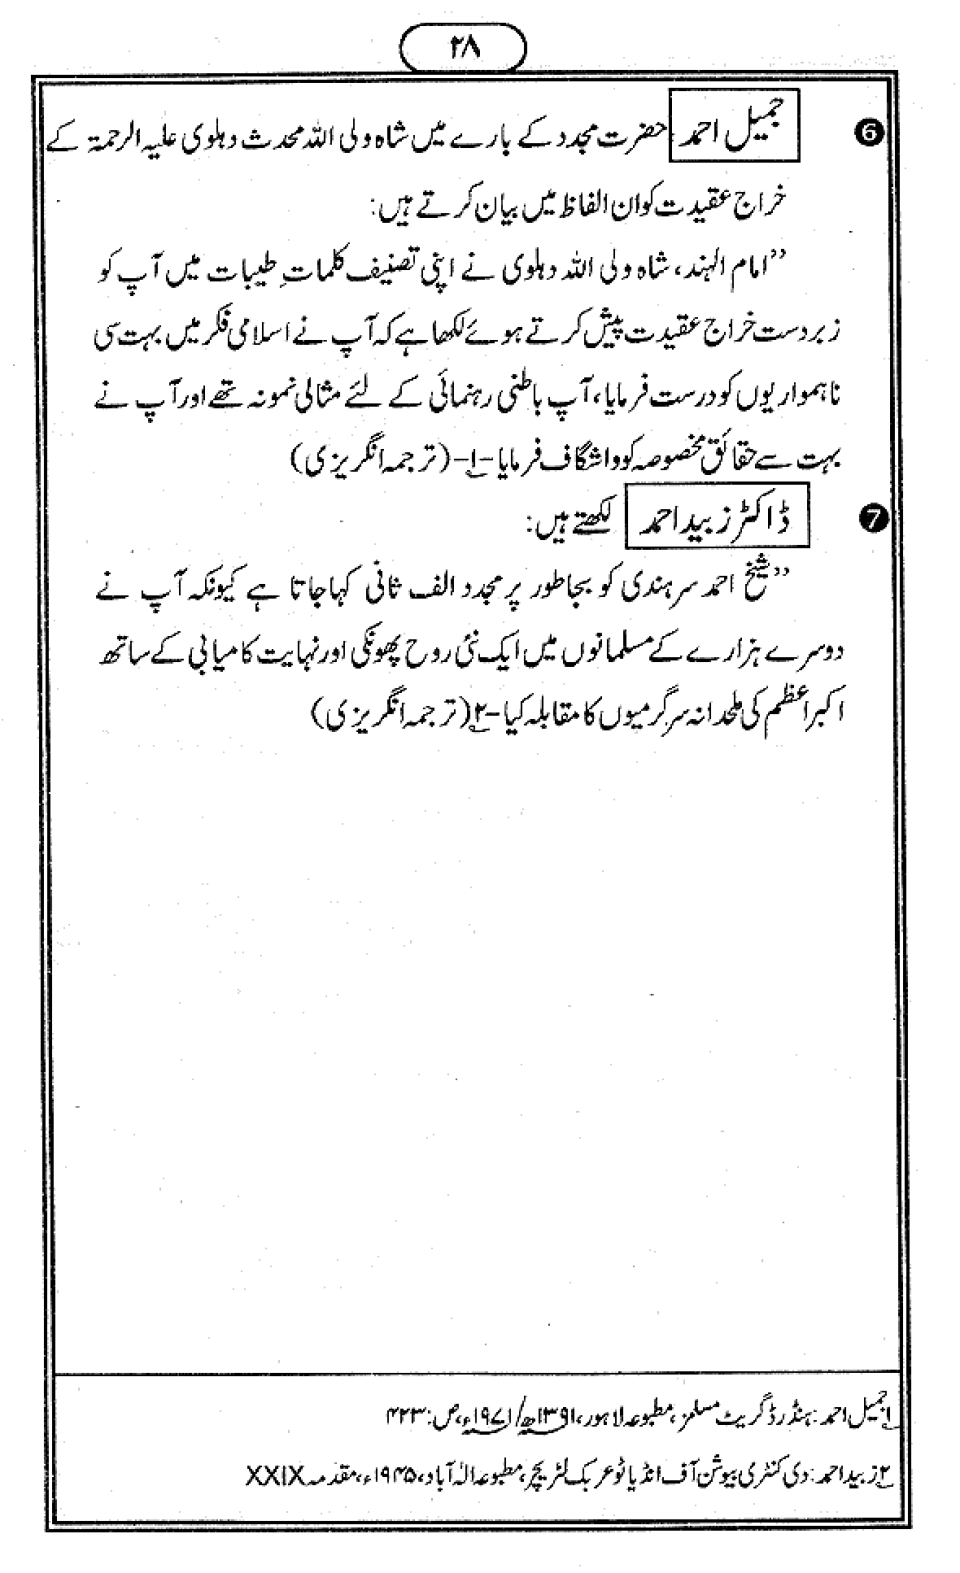 ۲۸
❻ جمیل احمد حضرت مجدد کے بارے میں شاہ ولی اللہ محدث دہلوی علیہ الرحمۃ کے
خراج عقیدت کو ان الفاظ میں بیان کرتے ہیں:
”امام الہند، شاہ ولی اللہ دہلوی نے اپنی تصنیف کلماتِ طیبات میں آپ کو
زبردست خراج عقیدت پیش کرتے ہوئے لکھا ہے کہ آپ نے اسلامی فکر میں بہت سی
ناہمواریوں کو درست فرمایا، آپ باطنی رہنمائی کے لئے مثالی نمونہ تھے اور آپ نے
بہت سے حقائق مخصوصہ کو واشگاف فرمایا-۱-(ترجمہ انگریزی)
❼ ڈاکٹر زبید احمد لکھتے ہیں:
”شیخ احمد سرہندی کو بجا طور پر مجدد الف ثانی کہا جاتا ہے کیونکہ آپ نے
دوسرے ہزارے کے مسلمانوں میں ایک نئی روح پھونکی اور نہایت کامیابی کے ساتھ
اکبر اعظم کی ملحدانہ سرگرمیوں کا مقابلہ کیا-۲(ترجمہ انگریزی)
۱ جمیل احمد: ہنڈرڈ گریٹ مسلمز، مطبوعہ لاہور، ۱۳۹۱ھ/۱۹۷۱ء، ص: ۴۲۳
۲ زبید احمد: دی کنٹری بیوشن آف انڈیا ٹو عربک لٹریچر، مطبوعہ الٰہ آباد، ۱۹۴۵ء، مقدمہ XXIX